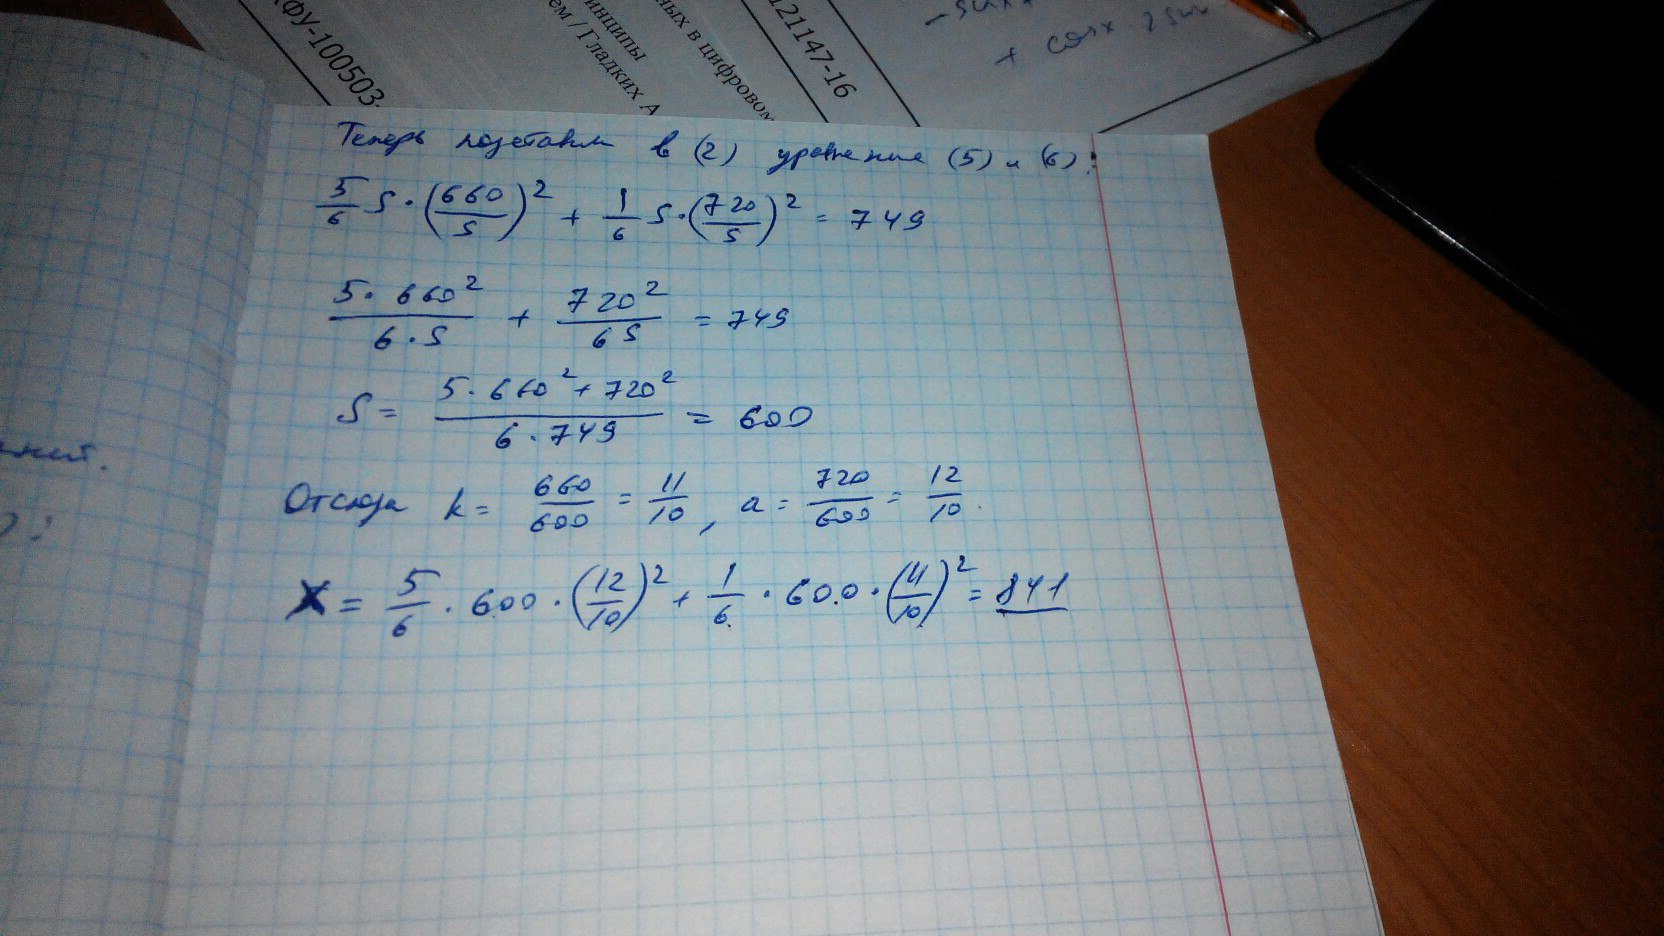 КФУ-100503-
ем / Гладких А
инципы
ных в цифровом
121147-16
+ cosx 2 sin
Теперь подставим в (2) уравнение (5) и (6):
5/6 S · (660/S)² + 1/6 S · (720/S)² = 749
5 · 660²/6 · S + 720²/6S = 749
S = 5 · 660² + 720²/6 · 749 = 600
Отсюда k = 660/600 = 11/10, a = 720/600 = 12/10.
X = 5/6 · 600 · (12/10)² + 1/6 · 600 · (11/10)² = 841